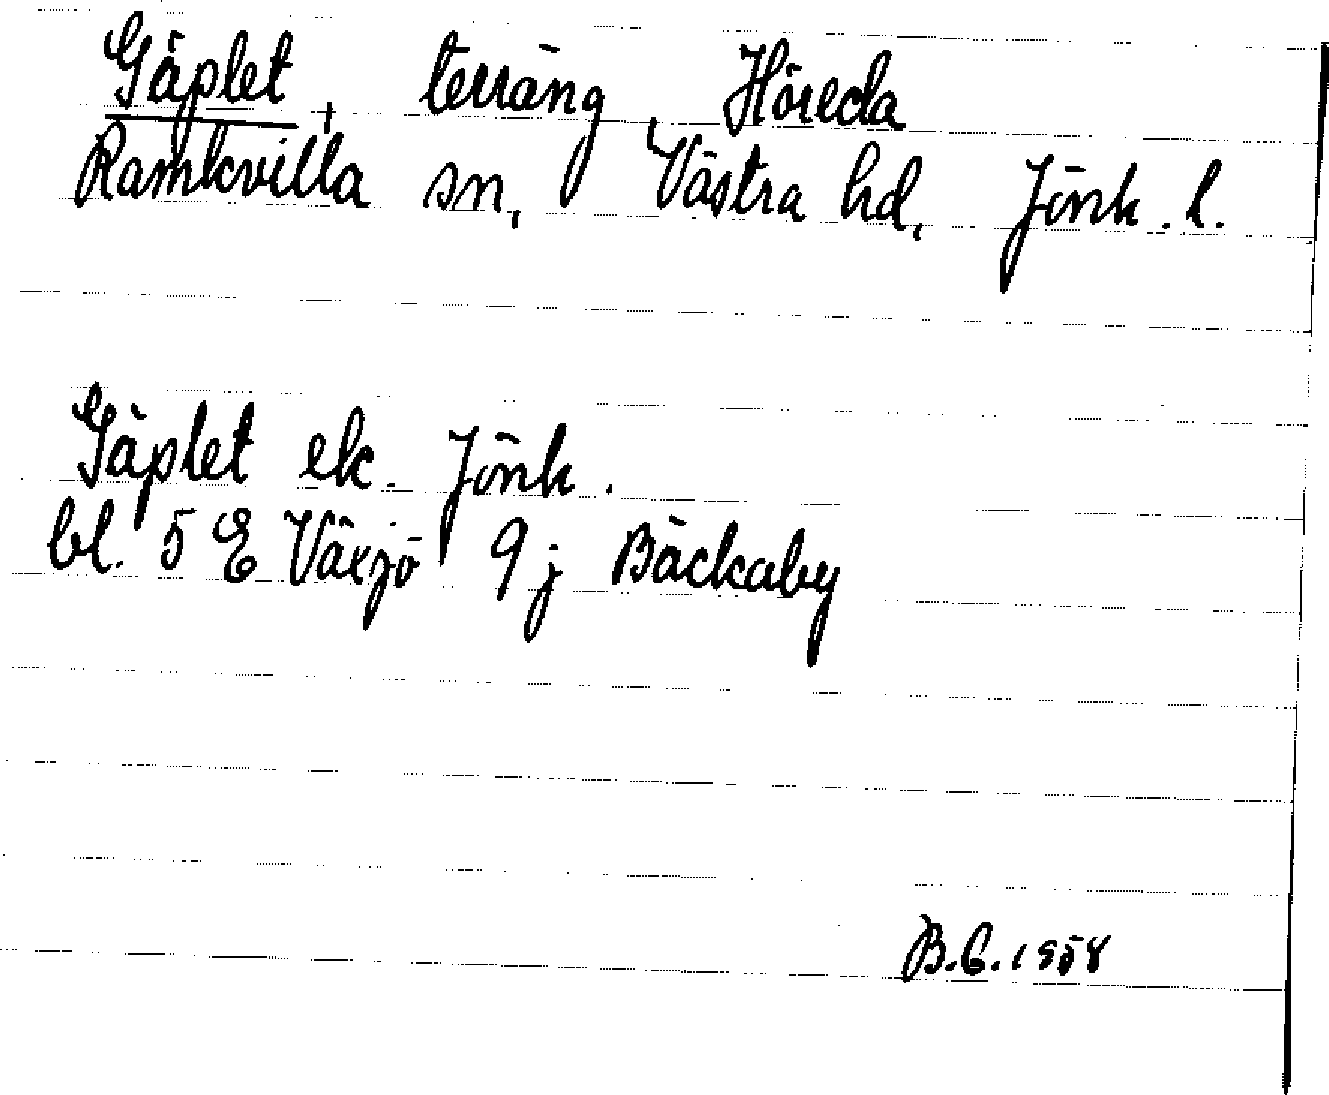 Gäplet, terräng, Höreda
Ramkvilla sn, Västra hd, Jönk. l.
Gäplet ek. Jönk.
bl. 5 E Växjö 9 j Bäckaby
B.E. 1958